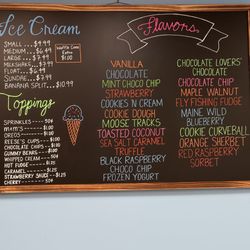 Ice Cream
SMALL... $4.99
MEDIUM... $6.49
LARGE... $7.99
MILKSHAKE.
FLOAT...
SUNDAE...
BANANA SPLIT... $10.99
Waffle Cone
Extra
$1.00
Toppings
SPRINKLES
M&M'S
OREOS
REESE'S CUPS
CHOCOLATE CHIPS
GUMMY BEARS
WHIPPED CREAM
HOT FUDGE
CARAMEL
STRAWBERRY SAUCE
CHERRY
Flavors
VANILLA
CHOCOLATE
MINT CHOCO CHIP
STRAWBERRY
COOKIES N CREAM
COOKIE DOUGH
MOOSE TRACKS
TOASTED COCONUT
SEA SALT CARAMEL
TRUFFLE
BLACK RASPBERRY
CHOCO CHIP
FROZEN YOGURT
CHOCOLATE LOVERS'
CHOCOLATE
CHOCOLATE CHIP
MAPLE WALNUT
FLY FISHING FUDGE
MAINE WILD
BLUEBERRY
COOKIE CURVEBALL
ORANGE SHERBET
RED RASPBERRY
SORBET